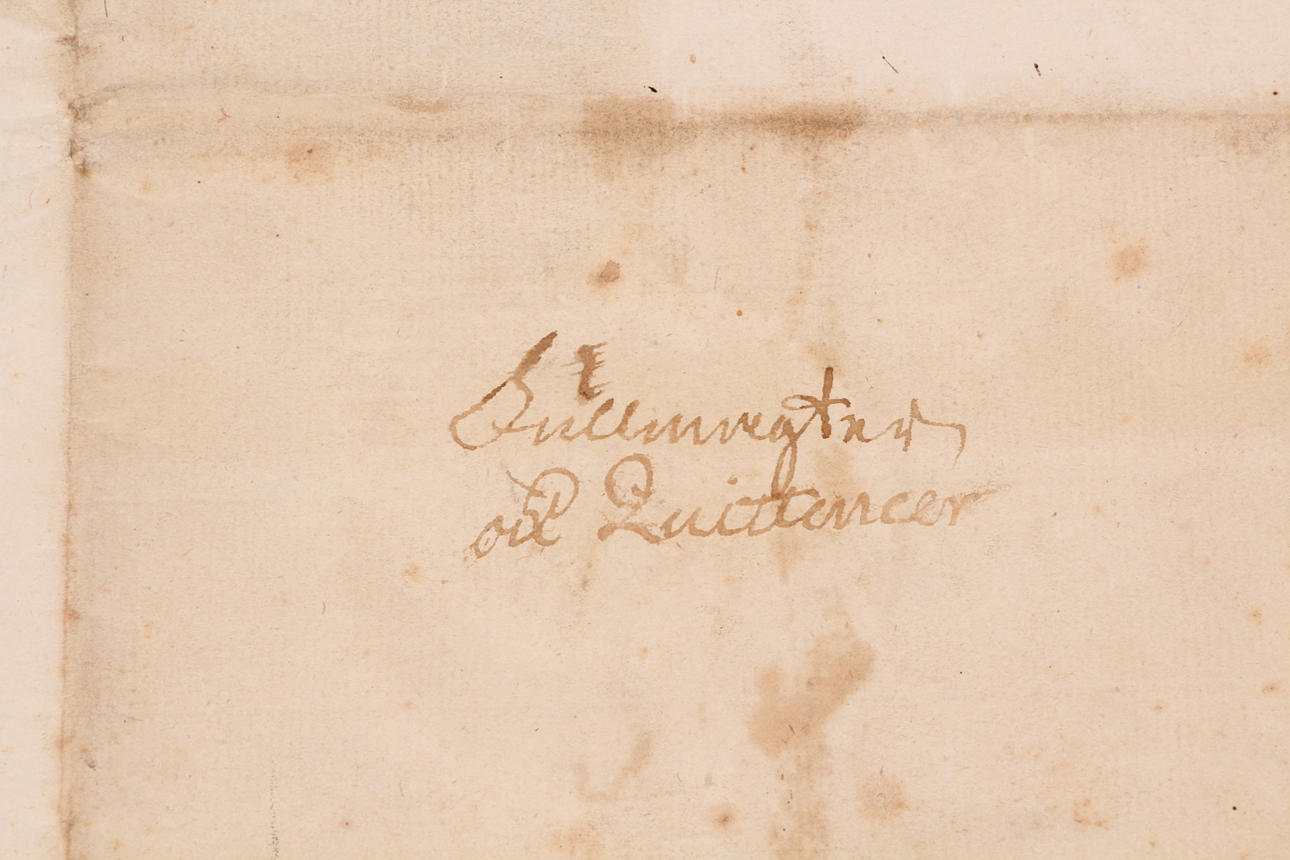 Fullmagter
och Quittancer